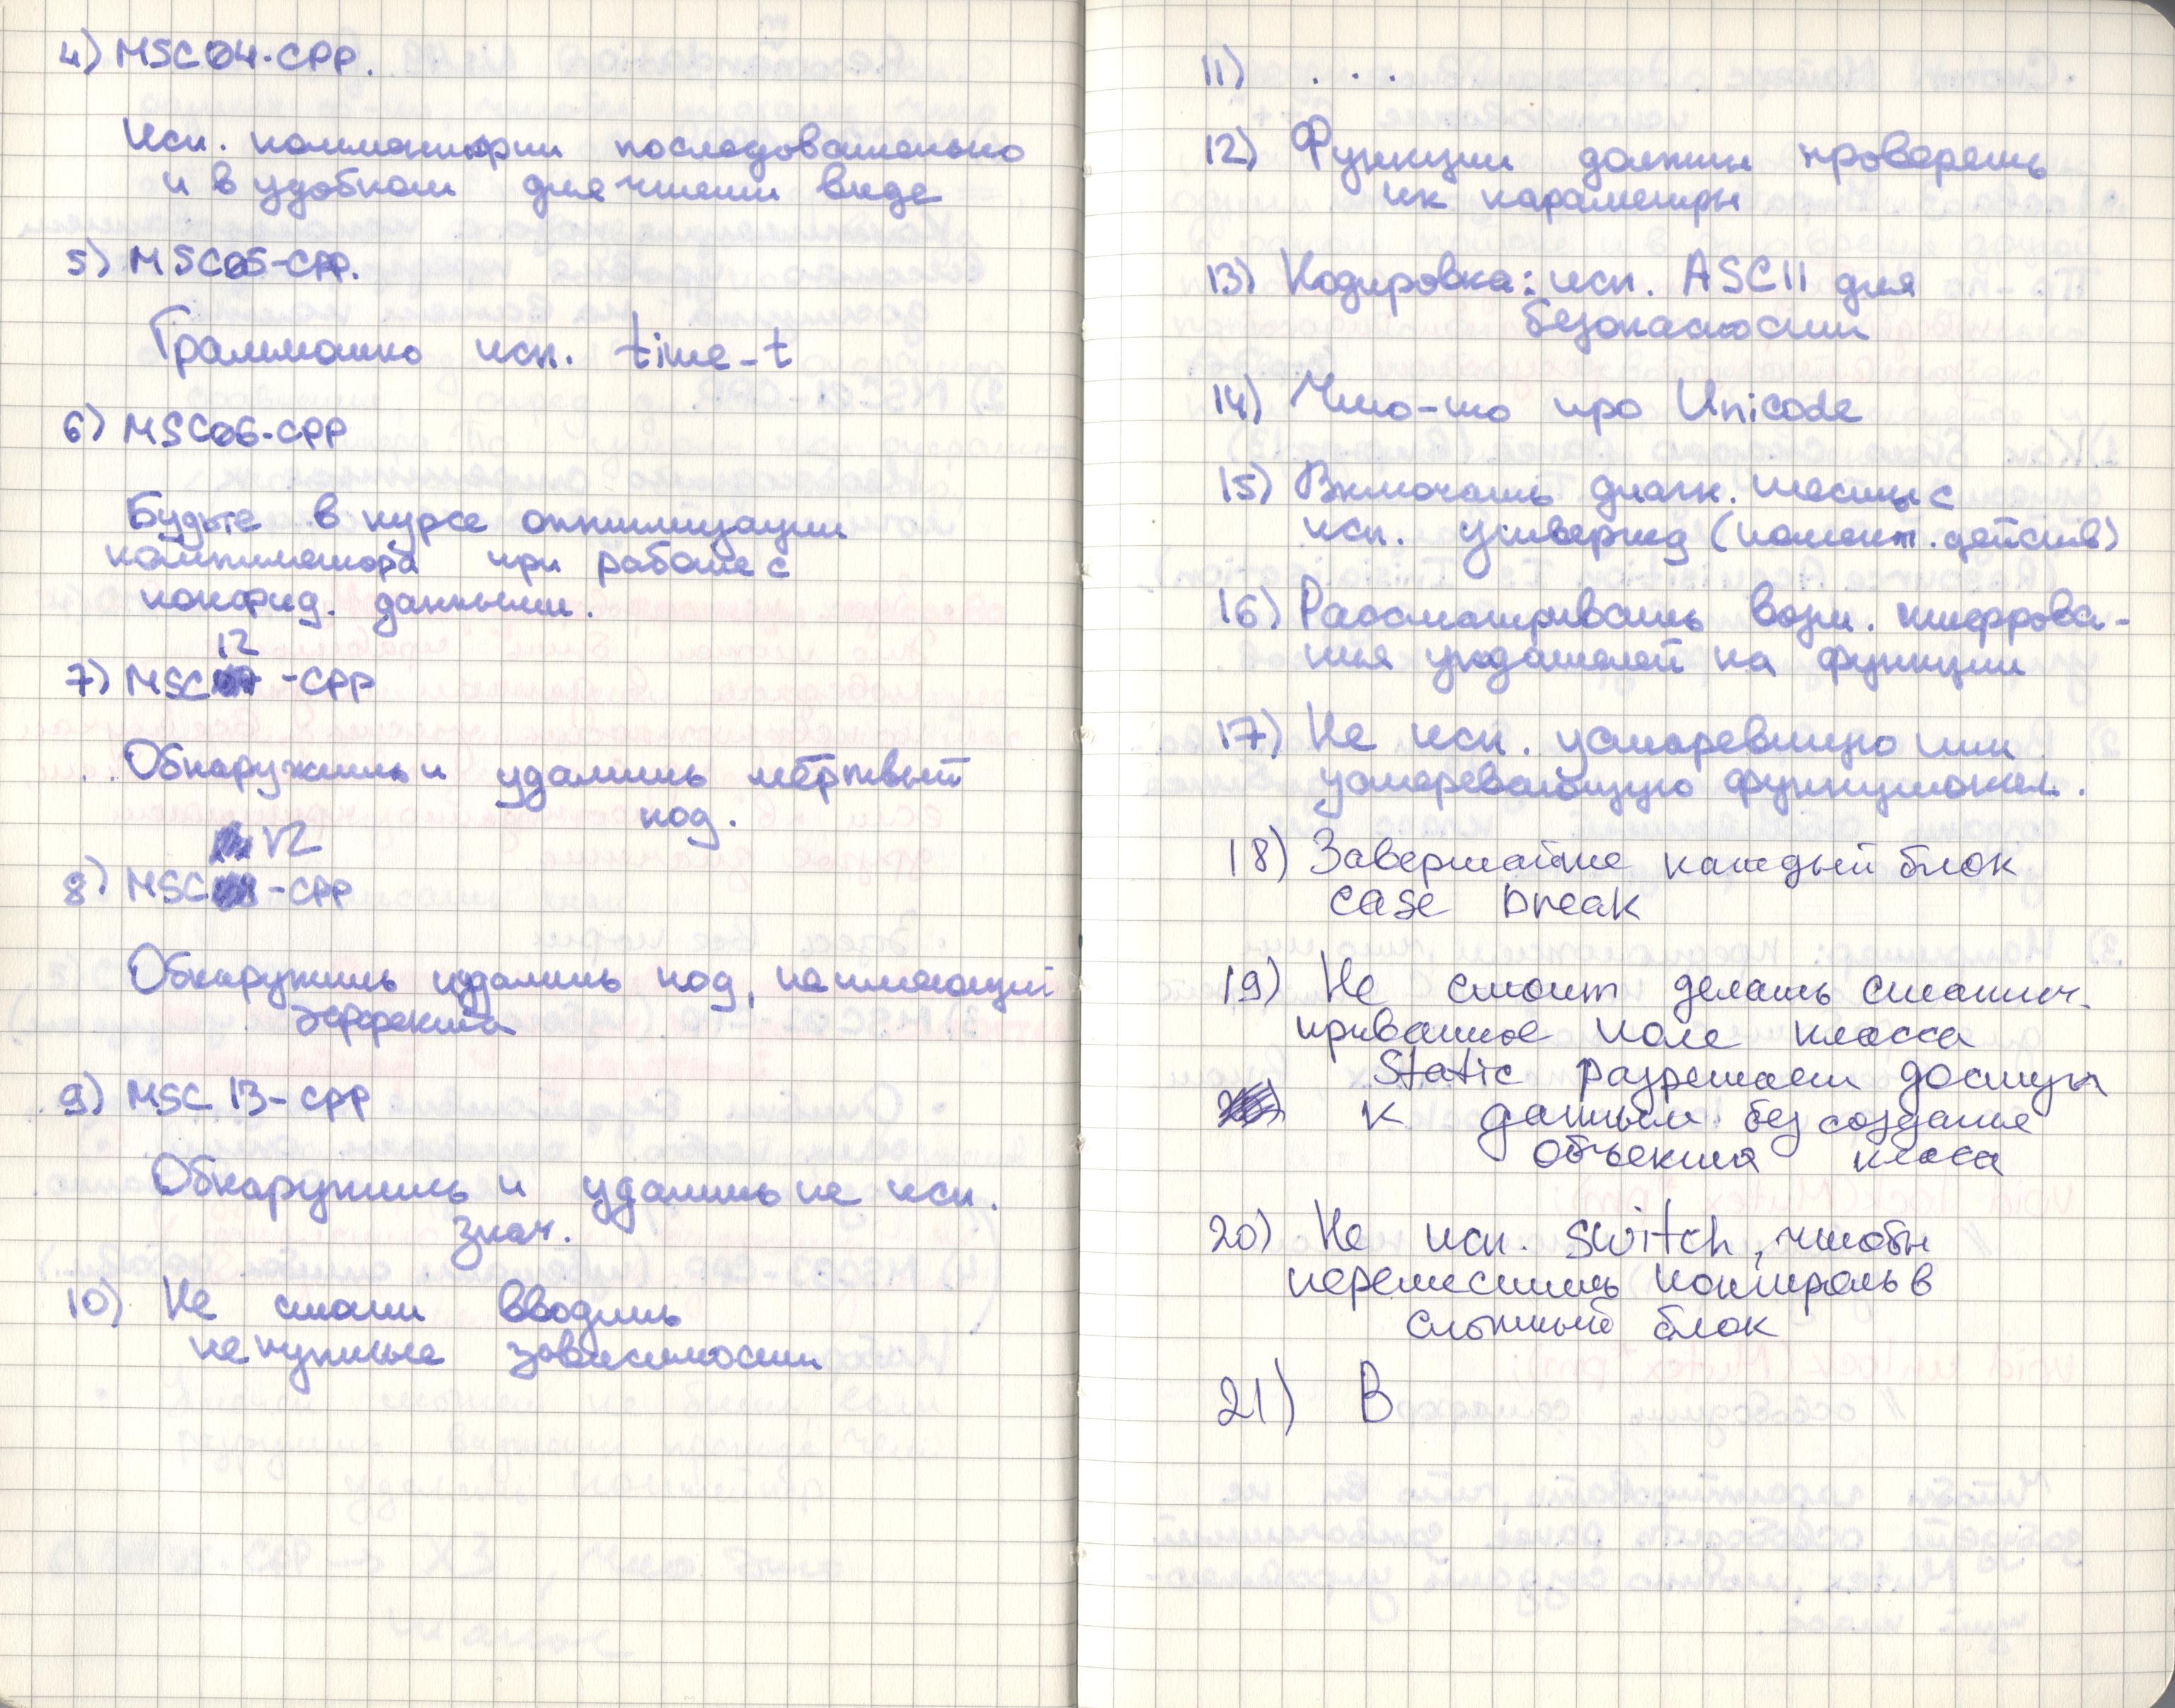 4) MSC04-CPP.
Исп. комментарии последовательно
и в удобном для чтения виде
5) MSC05-CPP.
Грамматно исп. time_t
6) MSC06-CPP
Будьте в курсе оптимизации
компилятора при работе с
конфид. данными.
12
7) MSC -CPP
Обнаружить и удалить мёртвый
код.
12
8) MSC -CPP
Обнаружить и удалить код, не имеющий
эффекта
9) MSC 13-CPP
Обнаружить и удалить не исп.
знач.
10) Не стоит вводить
не нужные зависимости
11) ...
12) Функции должны проверять
их параметры
13) Кодировка: исп. ASCII для
безопасности
14) Что-то про Unicode
15) Включать диагн. тесты с
исп. утвержд (коммент. действ)
16) Рассматривать возм. шифрова-
ния указателей на функции
17) Не исп. устаревшую или
устаревающую функционал.
18) Завершайте каждый блок
case break
19) Не стоит делать статич.
приватное поле класса
Static разрешает доступ
к данным без создания
объекта класса
20) Не исп. switch, чтобы
переместить контроль в
сложный блок
21) В